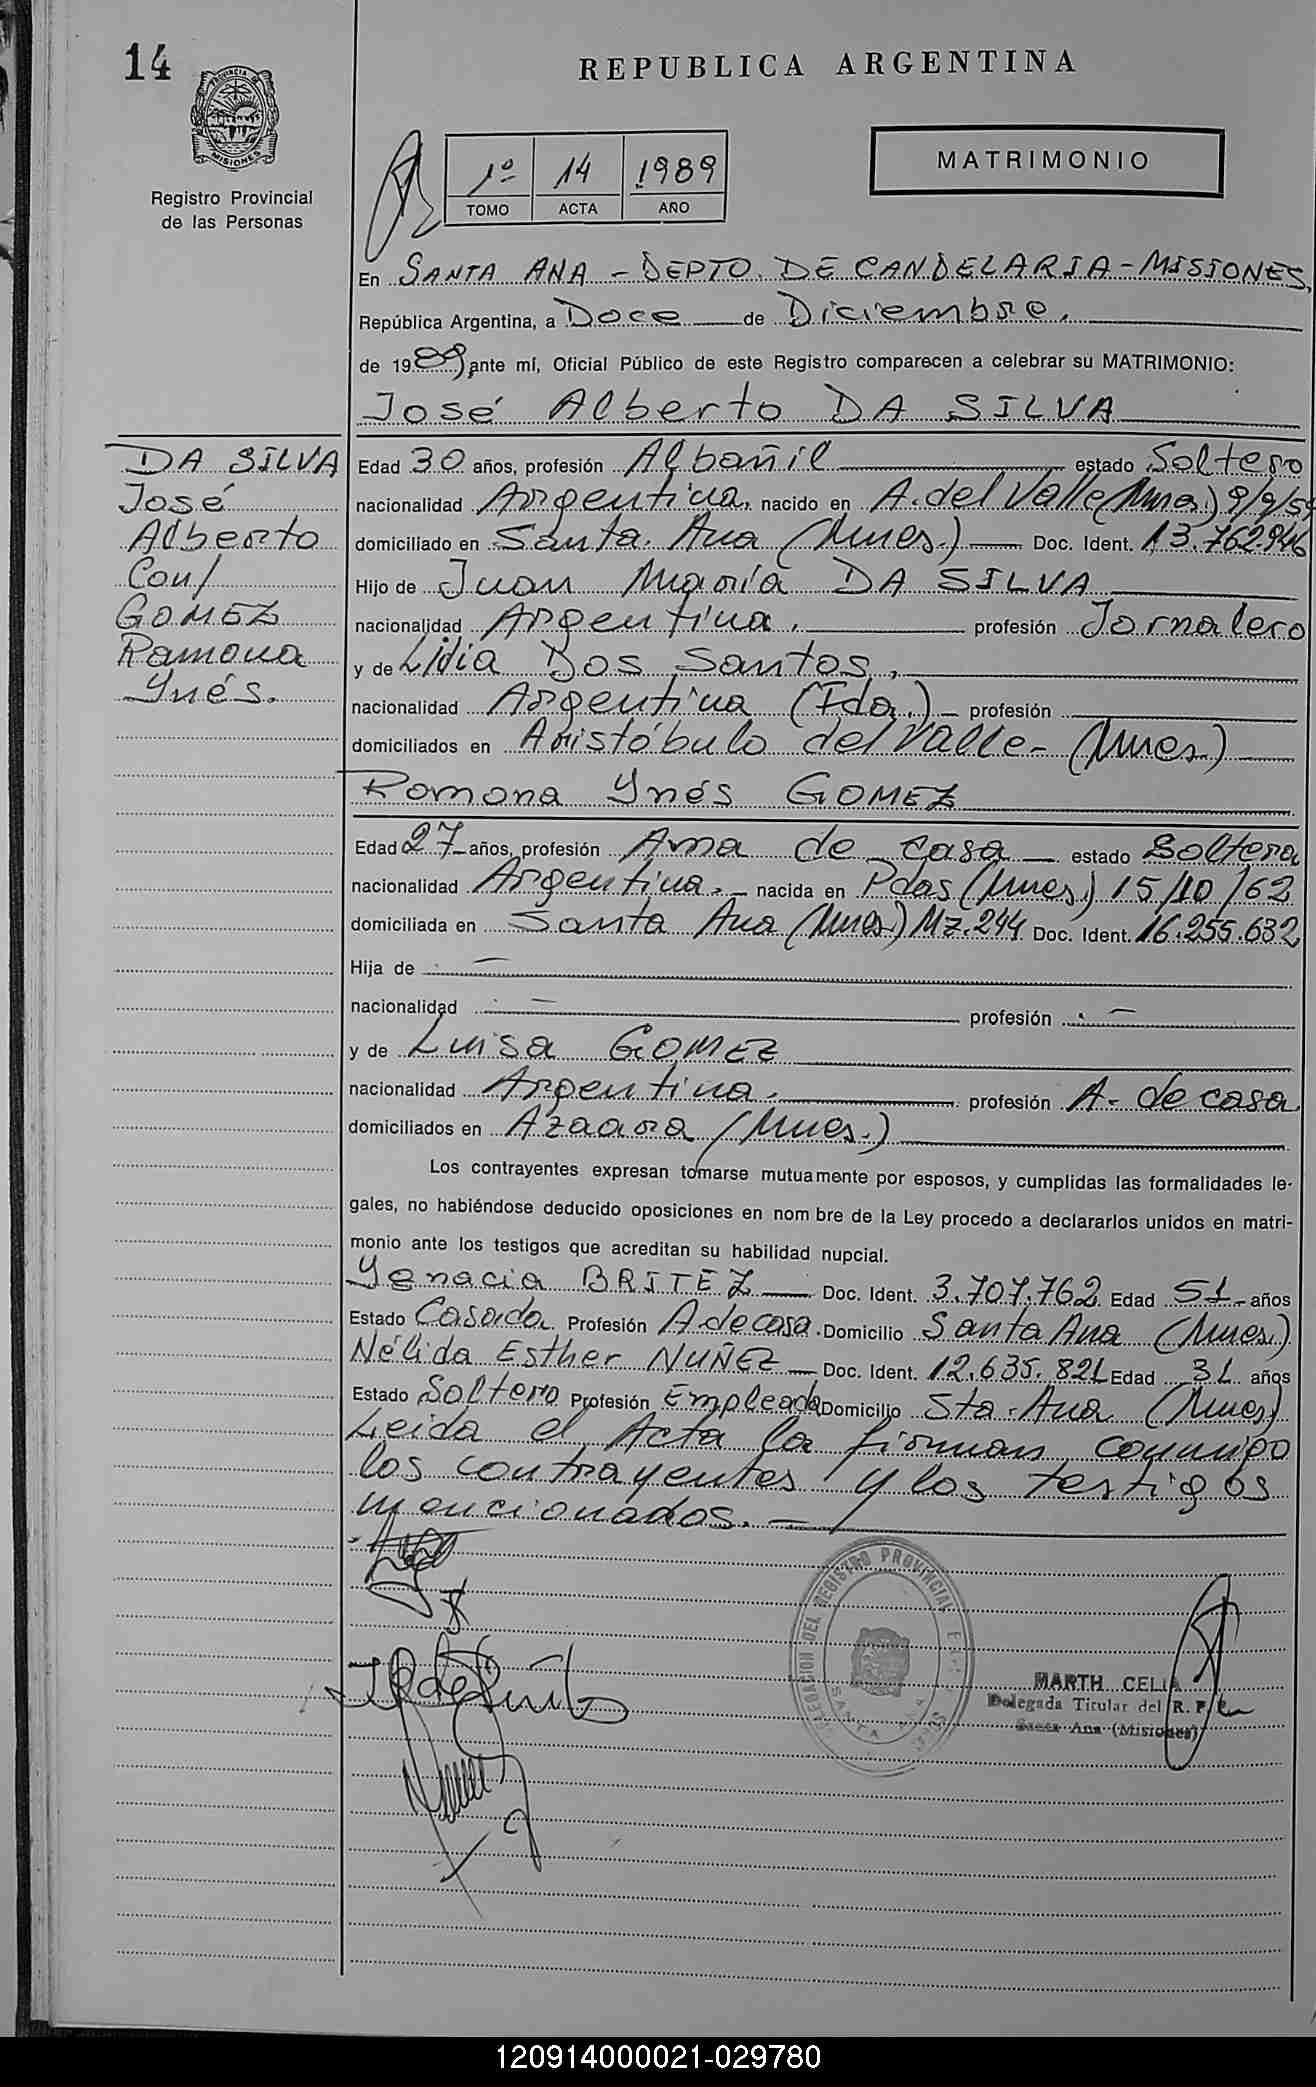 14
REPUBLICA ARGENTINA
PROVINCIA DE MISIONES
Registro Provincial
de las Personas
1º 14 1989
TOMO ACTA AÑO
MATRIMONIO
En SANTA ANA - DEPTO. DE CANDELARIA - MISIONES,
República Argentina, a Doce de Diciembre.
de 1989, ante mí, Oficial Público de este Registro comparecen a celebrar su MATRIMONIO:
José Alberto DA SILVA
DA SILVA
José
Alberto
Con/
GOMEZ
Ramona
Ynés.
Edad 30 años, profesión Albañil estado Soltero
nacionalidad Argentina, nacido en A. del Valle (Mnes.) 9/9/59
domiciliado en Santa Ana (Mnes.) Doc. Ident. 13.762.946
Hijo de Juan María DA SILVA
nacionalidad Argentina. profesión Jornalero
y de Lidia Dos Santos,
nacionalidad Argentina (Fda.) profesión
domiciliados en Aristóbulo del Valle - (Mnes.)
Ramona Ynés GOMEZ
Edad 27 años, profesión Ama de casa estado Soltera
nacionalidad Argentina. nacida en Pdas (Mnes.) 15/10/62
domiciliada en Santa Ana (Mnes.) Mz. 244 Doc. Ident. 16.255.632
Hija de —
nacionalidad — profesión —
y de Luisa GOMEZ
nacionalidad Argentina. profesión A. de casa
domiciliados en Azara (Mnes.)
Los contrayentes expresan tomarse mutuamente por esposos, y cumplidas las formalidades le-
gales, no habiéndose deducido oposiciones en nombre de la Ley procedo a declararlos unidos en matri-
monio ante los testigos que acreditan su habilidad nupcial.
Ygnacia BRITEZ Doc. Ident. 3.707.762 Edad 51 años
Estado Casada Profesión A de casa Domicilio Santa Ana (Mnes.)
Nélida Esther NUÑEZ Doc. Ident. 12.635.821 Edad 31 años
Estado Soltero Profesión Empleada Domicilio Sta. Ana (Mnes)
Leida el Acta la firman conmigo
los contrayentes y los testigos
mencionados.
DELEGACION DEL REGISTRO PROVINCIAL
SANTA ANA
MARTH CELIA
Delegada Titular del R. P.
Santa Ana (Misiones)
120914000021-029780